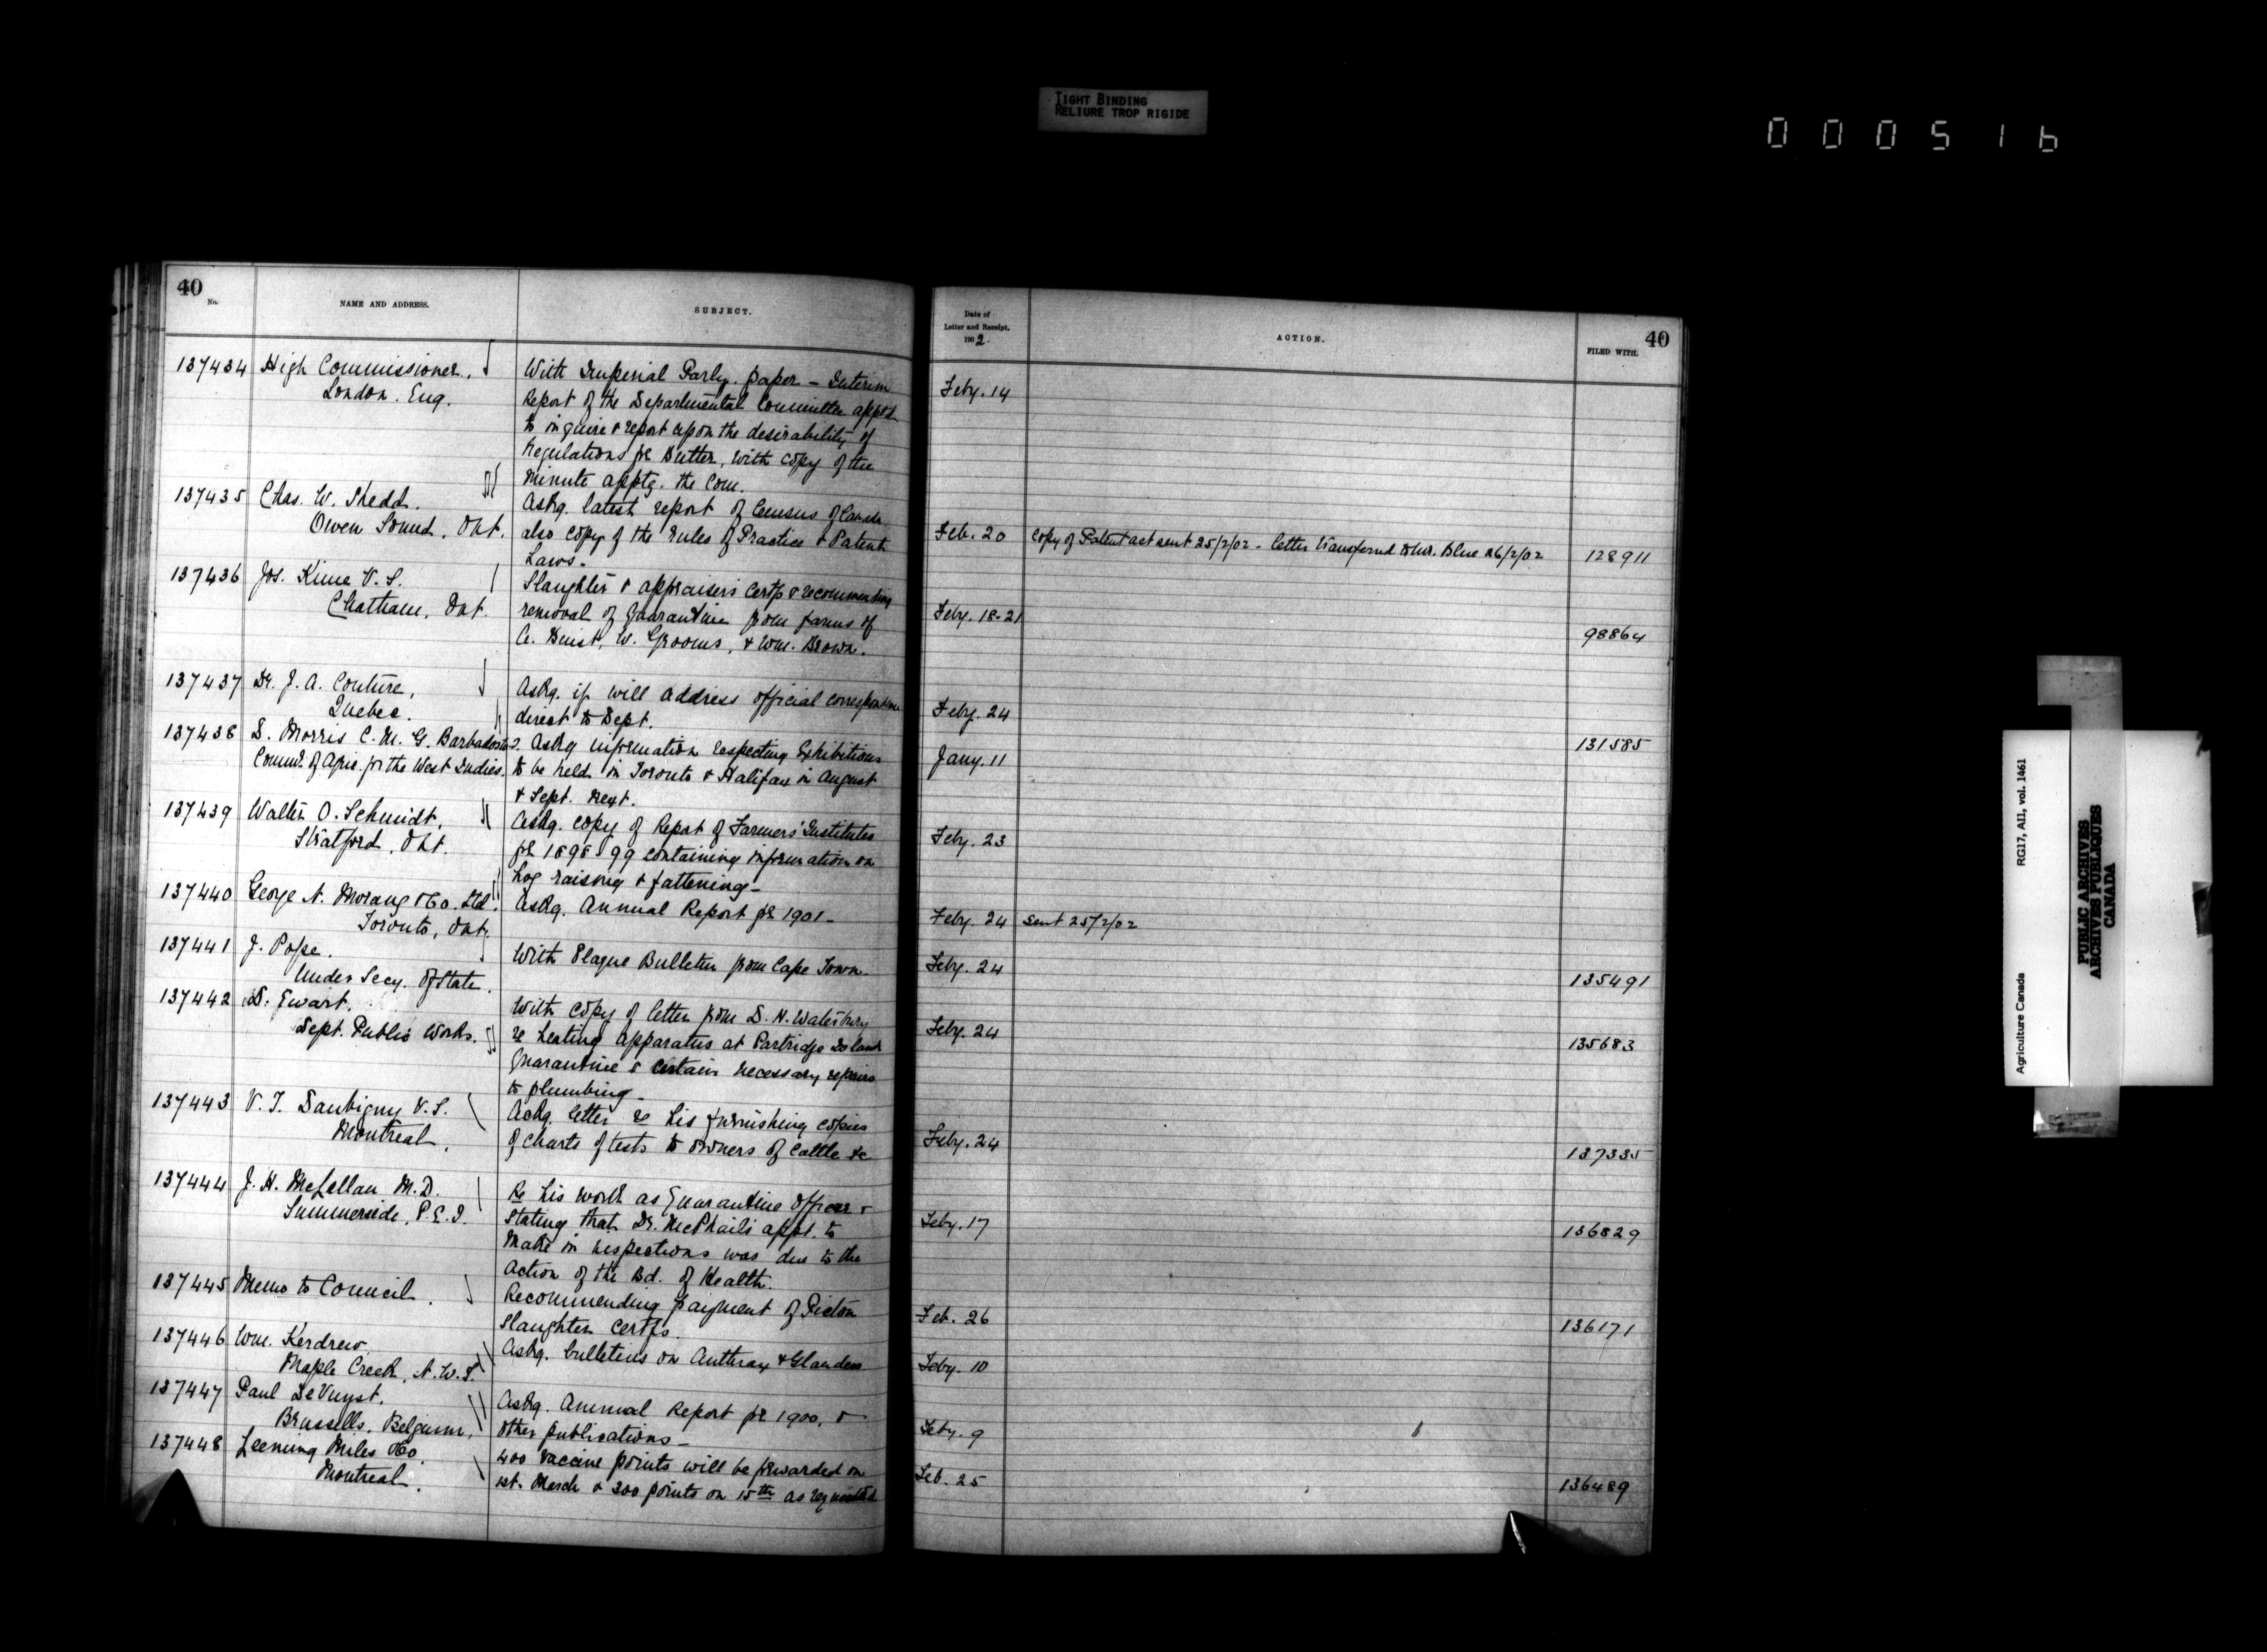 TIGHT BINDING
RELIURE TROP RIGIDE
000516
40
No.
NAME AND ADDRESS.
SUBJECT.
137434 High Commissioner,
London. Eng.
With Imperial Parly. paper - Interim
Report of the Departmental Committee apptd
to inquire & report upon the desirability of
Regulations for Butter, with copy of the
Minute apptg. the Com.
137435 Chas. W. Shedd.
Owen Sound, Ont.
Askg. latest report of Census of Canada
also copy of the rules of Practice & Patent
Laws.
137436 Jos. Kime V.S.
Chatham, Ont.
Slaughter & appraisers certfs & recommending
removal of Quarantine from farms of
W. Grooms, & Wm. Brown.
137437 Dr. J. A. Couture,
Quebec.
Askg. if will address official correspondence
direct to Dept.
137438 D. Morris C.M.G. Barbados
Commr. of Agric. for the West Indies.
Askg information respecting Exhibitions
to be held in Toronto & Halifax in August
& Sept. next.
137439 Walter O. Schmidt,
Stratford, Ont.
Askg. copy of Report of Farmers' Institutes
for 1898-99 containing information on
hog raising & fattening -
137440 George N. Morang & Co. Ltd.
Toronto, Ont.
Askg. Annual Report for 1901 -
137441 J. Pope.
Under Secy. of State.
With Plague Bulletin from Cape Town.
137442 D. Ewart.
Dept. Public Works.
With copy of letter from D. H. Waterbury
re heating apparatus at Partridge Island
Quarantine & certain necessary repairs
to plumbing -
137443 V. T. Daubigny V.S.
Montreal.
Ackg. letter re his furnishing copies
of charts of tests to owners of Cattle &c
137444 J. H. McLellan M.D.
Summerside, P.E.I.
Re his work as Quarantine Officer &
stating that Dr. McPhail's appt. to
make inspections was due to the
action of the Bd. of Health.
137445 Memo to Council.
Recommending payment of Pictou
Slaughter Certfs.
137446 Wm. Kerdrew
Maple Creek, N.W.T.
Askg. bulletins on Anthrax & Glanders
137447 Paul DeVuyst.
Brussells, Belgium,
Askg. Annual Report for 1900, &
other publications -
137448 Leeming Miles & Co.
Montreal.
400 vaccine points will be forwarded on
1st. March & 300 points on 15th as requested
Date of
Letter and Receipt,
1902.
ACTION.
FILED WITH.
40
Feby. 14
Feb. 20 Copy of Patent act sent 25/2/02 - letter transferred to Mr. Blue 26/2/02 128911
Feby. 18-21 98864
Feby. 24 131585
Jany. 11
Feby. 23
Feby. 24 Sent 25/2/02
Feby. 24 135491
Feby. 24 135683
Feby. 24 137335
Feby. 17 136829
Feb. 26 136171
Feby. 10
Feby. 9
Feb. 25 136489
Agriculture Canada
RG17, AII, vol. 1461
PUBLIC ARCHIVES
ARCHIVES PUBLIQUES
CANADA